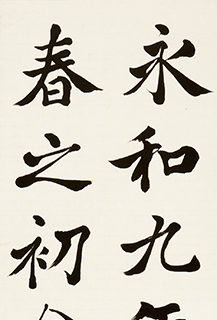 永和九
春之初